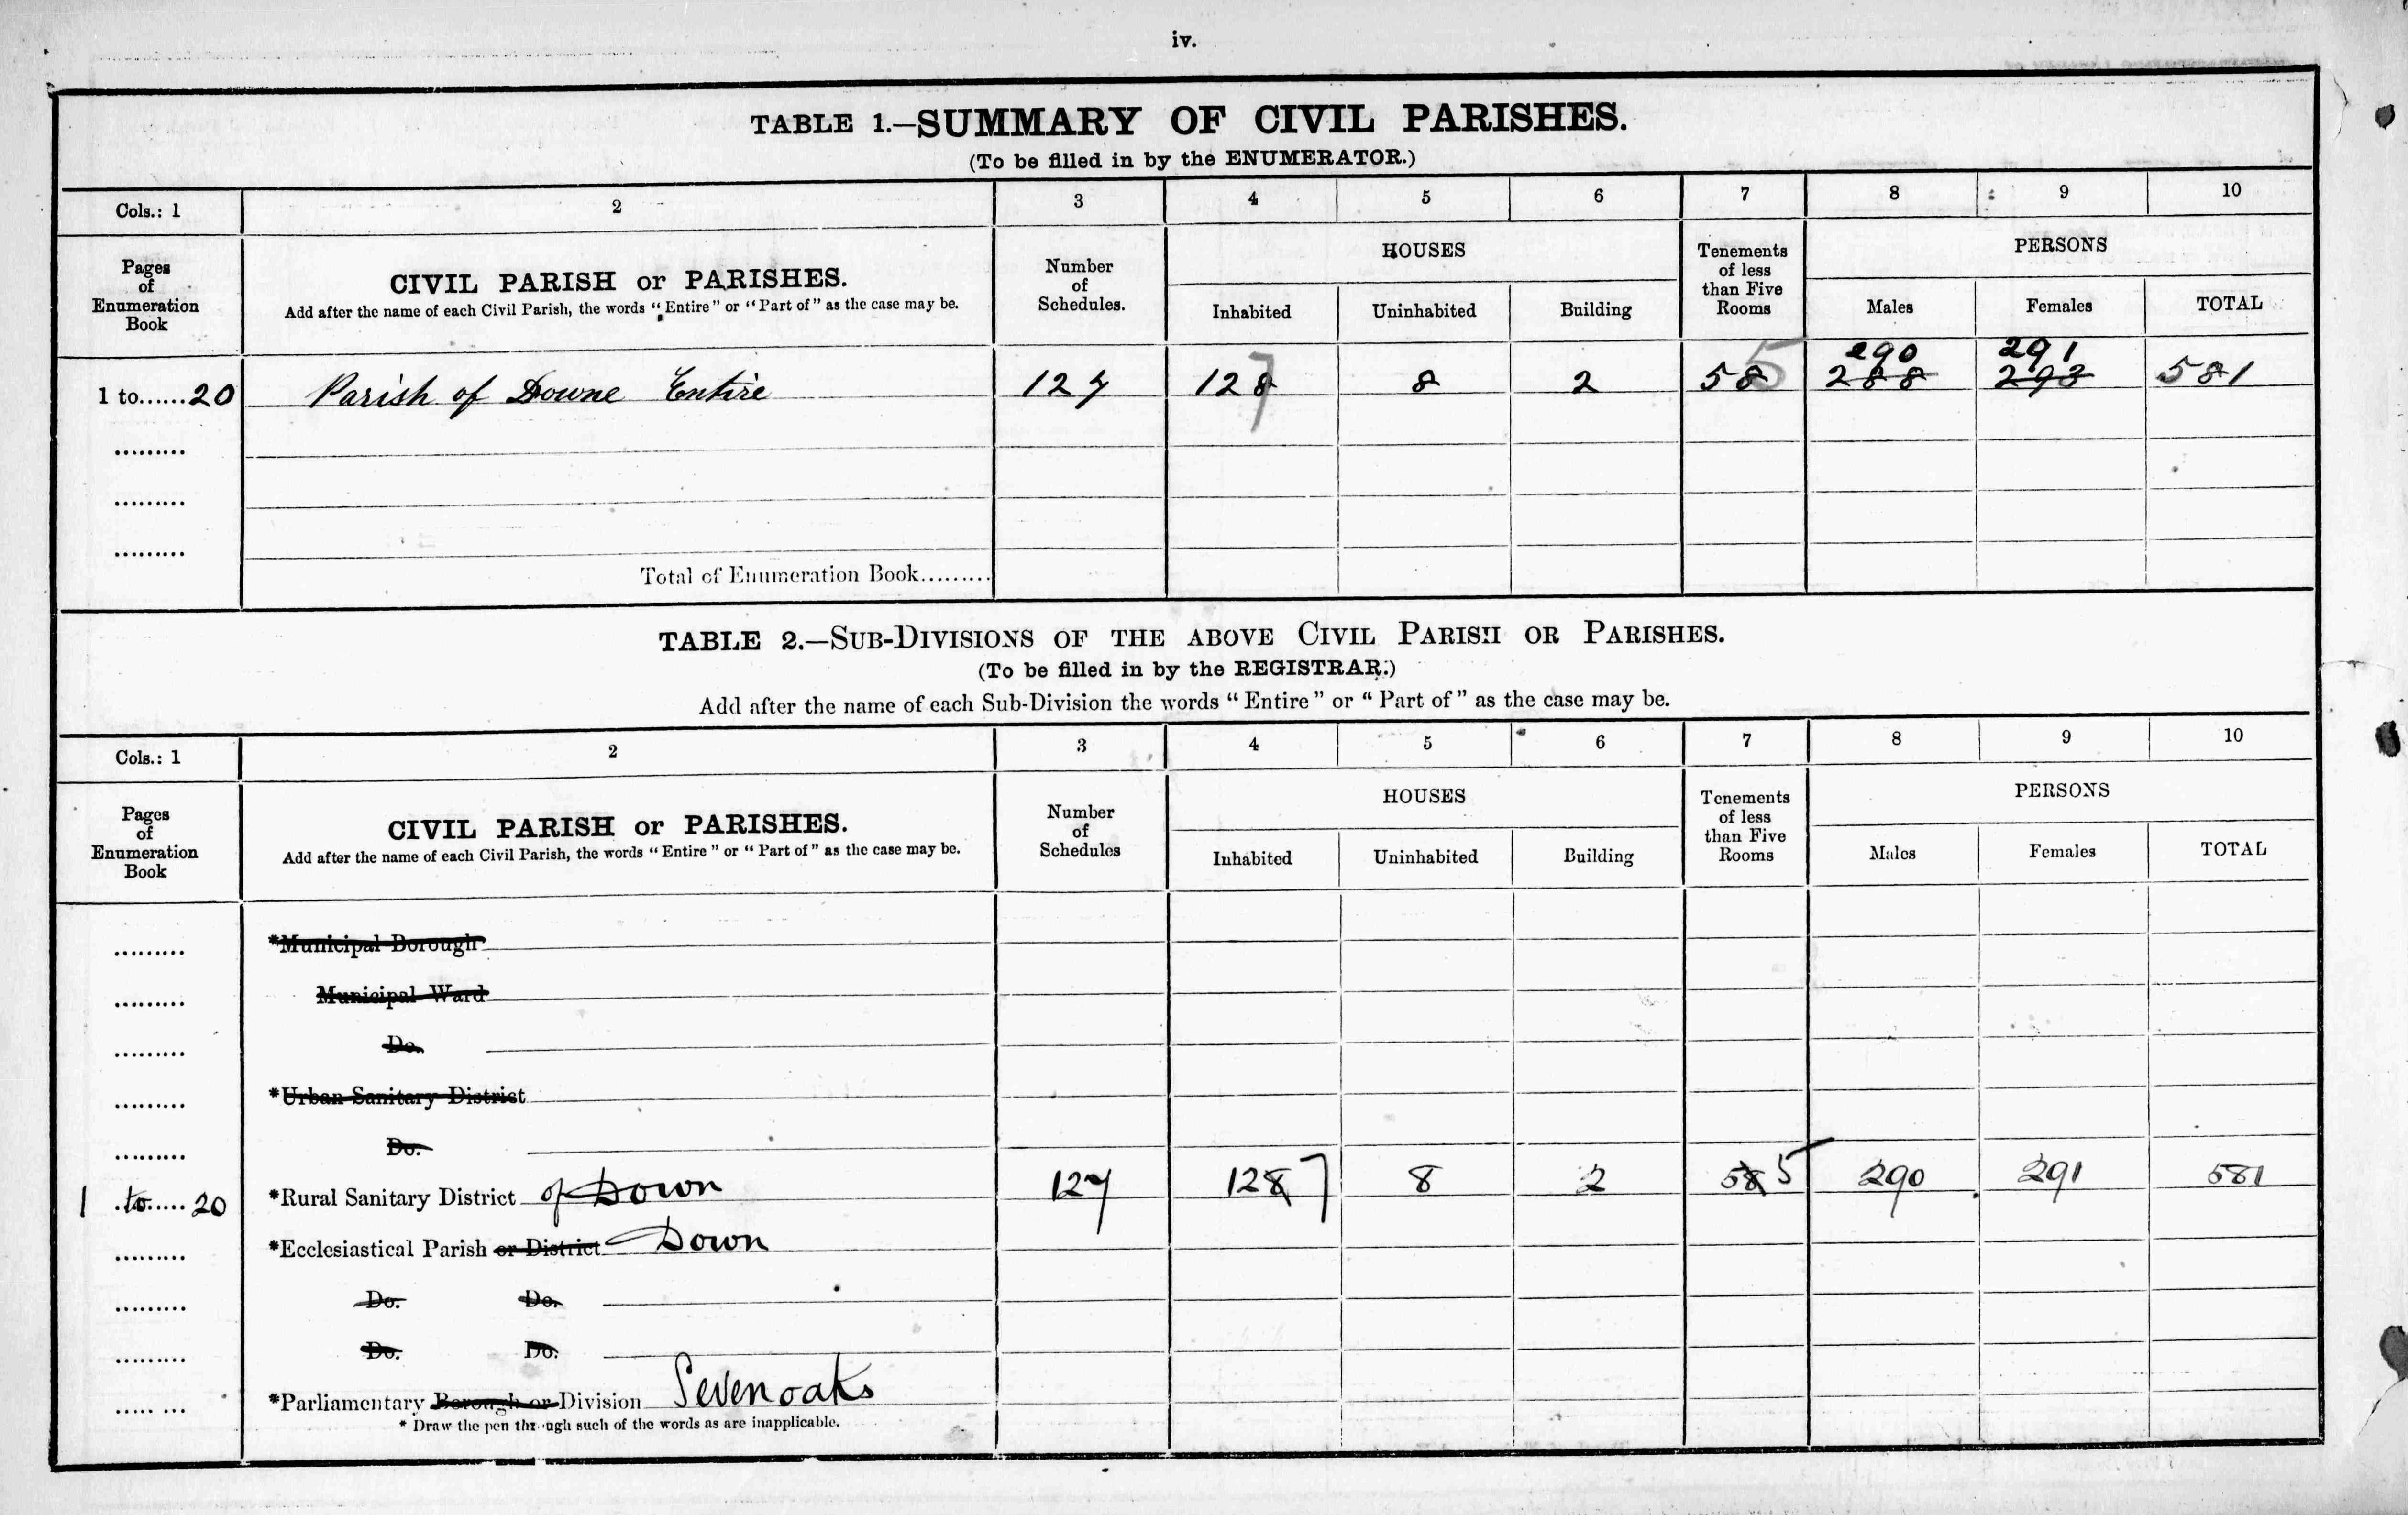 iv.
TABLE 1.—SUMMARY OF CIVIL PARISHES.
(To be filled in by the ENUMERATOR.)
Cols.: 1 2 3 4 5 6 7 8 9 10
Pages of Enumeration Book
CIVIL PARISH or PARISHES.
Add after the name of each Civil Parish, the words "Entire" or "Part of" as the case may be.
Number of Schedules.
HOUSES
Inhabited Uninhabited Building
Tenements of less than Five Rooms
PERSONS
Males Females TOTAL
290 291
1 to......20 Parish of Downe Entire 127 128 7 8 2 58 5 288 293 581
.........
.........
.........
Total of Enumeration Book.........
TABLE 2.—SUB-DIVISIONS OF THE ABOVE CIVIL PARISH OR PARISHES.
(To be filled in by the REGISTRAR.)
Add after the name of each Sub-Division the words "Entire" or "Part of" as the case may be.
Cols.: 1 2 3 4 5 6 7 8 9 10
Pages of Enumeration Book
CIVIL PARISH or PARISHES.
Add after the name of each Civil Parish, the words "Entire" or "Part of" as the case may be.
Number of Schedules
HOUSES
Inhabited Uninhabited Building
Tenements of less than Five Rooms
PERSONS
Males Females TOTAL
......... *Municipal Borough
......... Municipal Ward
......... Do.
......... *Urban Sanitary District
......... Do.
1 to......20 *Rural Sanitary District of Down 127 128 7 8 2 58 5 290 291 581
......... *Ecclesiastical Parish or District Down
......... Do. Do.
......... Do. Do.
..... ... *Parliamentary Borough or Division Sevenoaks
* Draw the pen through such of the words as are inapplicable.